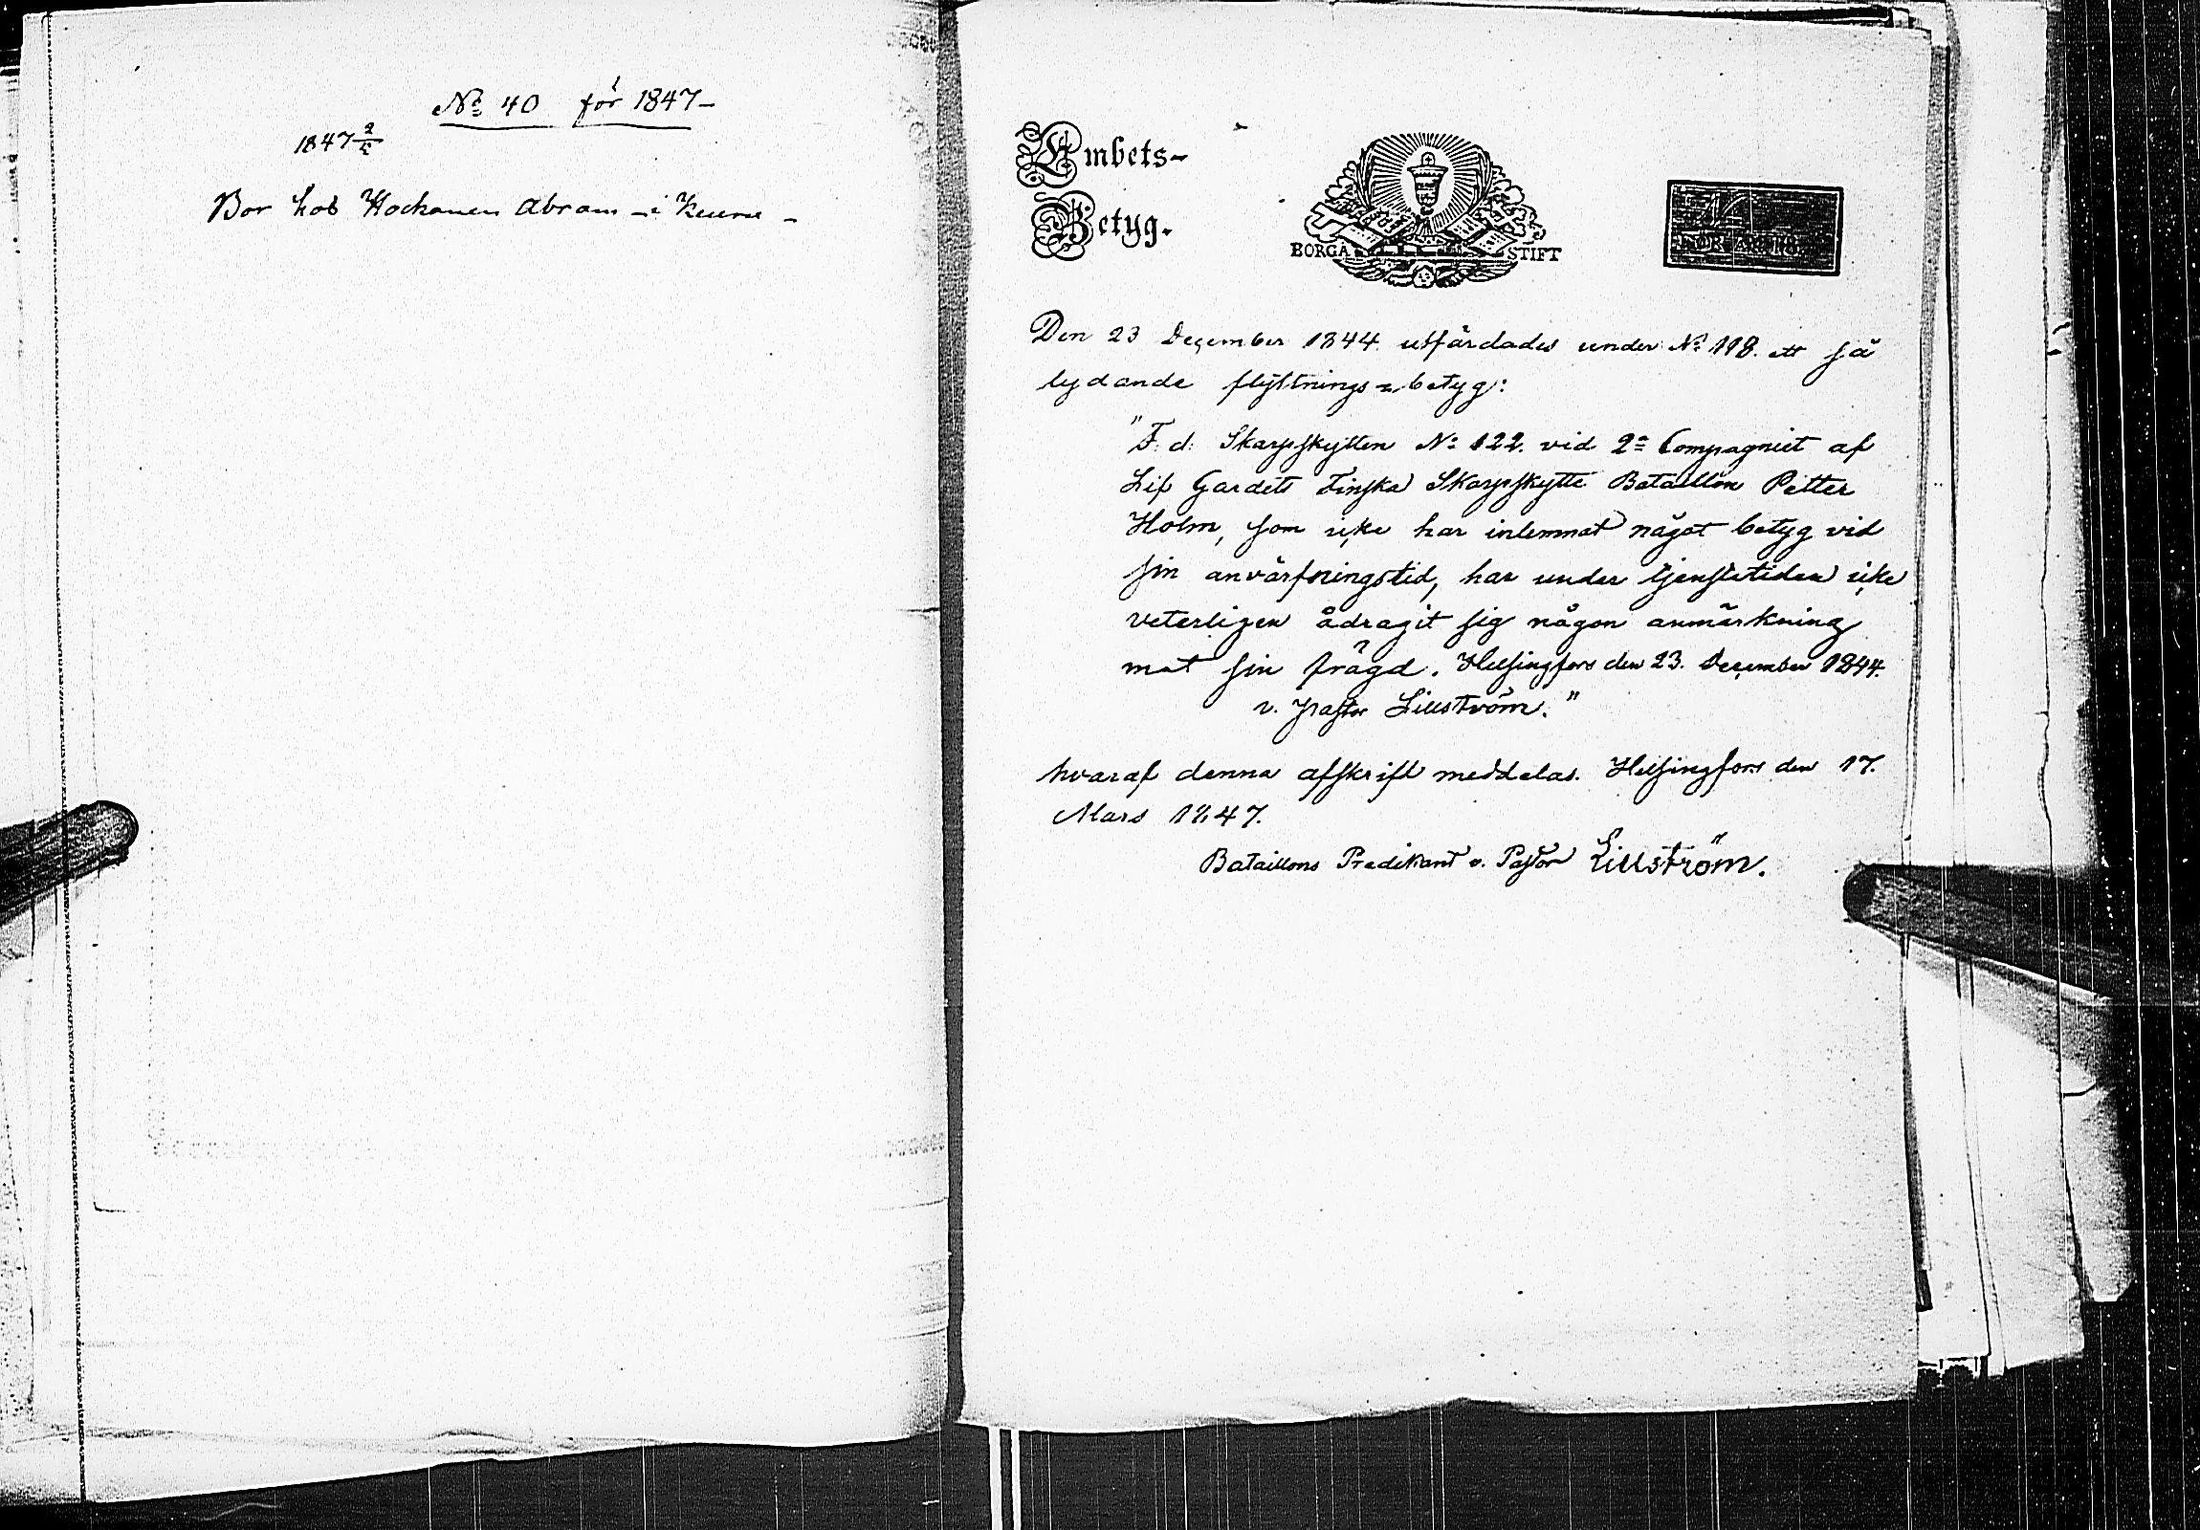 No 40 för 1847-
1847 2/5
Bor hos Hockanen Abram - i
Embets-
Betyg.
BORGÅ STIFT
Den 23 December 1844 utfärdades under No 118. ett så
lydande flyttnings-betyg:
"F. d. Skarpskytten No 122. vid 2a Compagniet af
Lif Gardets Finska Skarpskytte Bataillon Petter
Holm, som icke har inlemnat något betyg vid
sin anvärfningstid, har under tjenstetiden icke
veterligen ådragit sig någon anmärkning
mot sin frägd. Helsingfors den 23. December 1844.
v. Pastor Lillström."
hvaraf denna afskrift meddelas. Helsingfors den 17.
Mars 1847.
Bataillons Predikant v. Pastor Lillström.